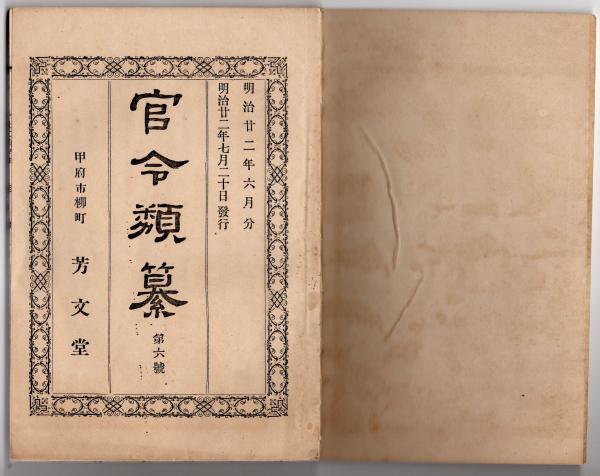 明治廿二年六月分
明治廿二年七月二十日發行
官令類纂
第六號
甲府市柳町
芳文堂